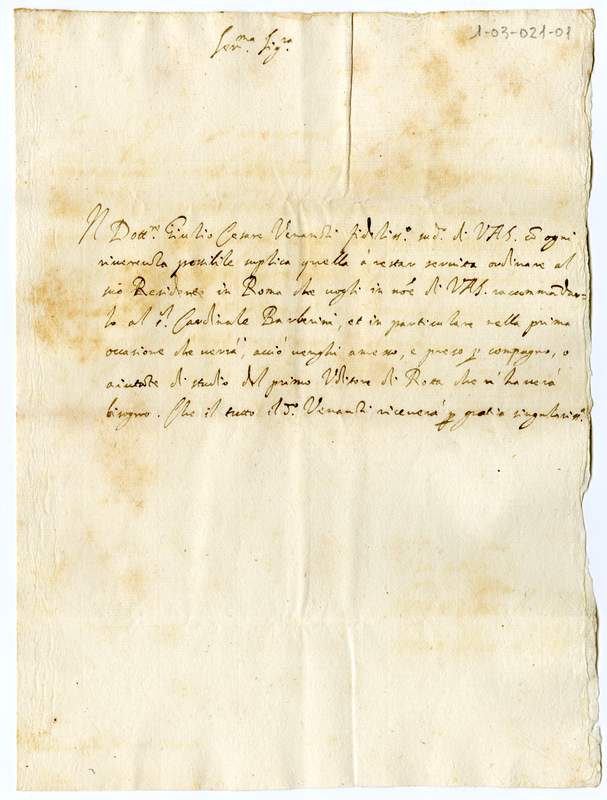 1-03-021-01
Ser.ma Sig.ra
Il Dott.re Giulio Cesare Venanzi fidelis.o sud.o di VAS. cõ ogni
riverenza possibile suplica quella à restar servita ordinare al
suo Residente in Roma che vogli in nõe di VAS. raccommãdar-
lo al S.r Cardinale Barberini, et in particulare nella prima
occasione che verrà, acciò venghi ameso, e preso p compagno, o
aiutate di studio del primo Uditore di Rota che n'haverà
bisogno. Che il tutto il d.o Venanzi riceverà p gratia singularis.a